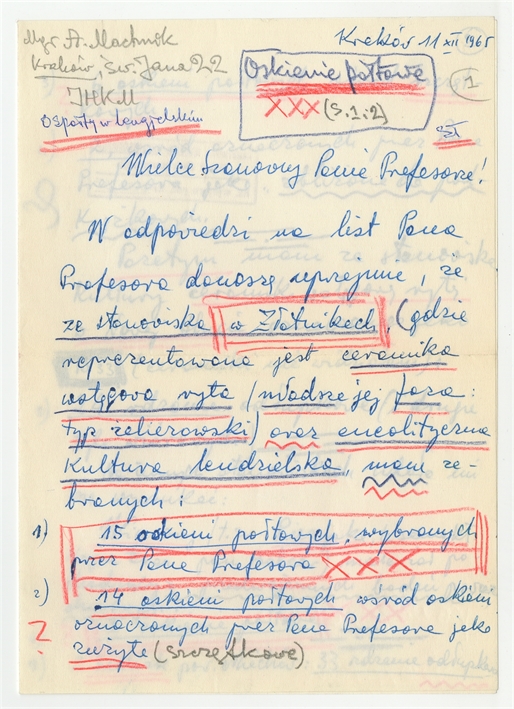 Mgr A. Machnik
Kraków, Św. Jana 22
IHKM
Kraków 11 XII 1965
Oskienie połtowe
XXX (S.1:2)
1
Wielce Szanowny Panie Profesorze!
W odpowiedzi na list Pana
Profesora donoszę uprzejmie, że
ze stanowiska w Złotnikach, (gdzie
reprezentowana jest ceramika
wstęgowa ryta (młodsze jej faza:
typ żelizowski) oraz eneolityczna
kultura lendzielska, mam ze-
branych:
1) 15 oskieni połtowych, wybranych
przez Pana Profesora XXX
2) 14 oskieni połtowych wśród oskieni
oznaczonych przez Pana Profesora jako
? zużyte (szczątkowe)